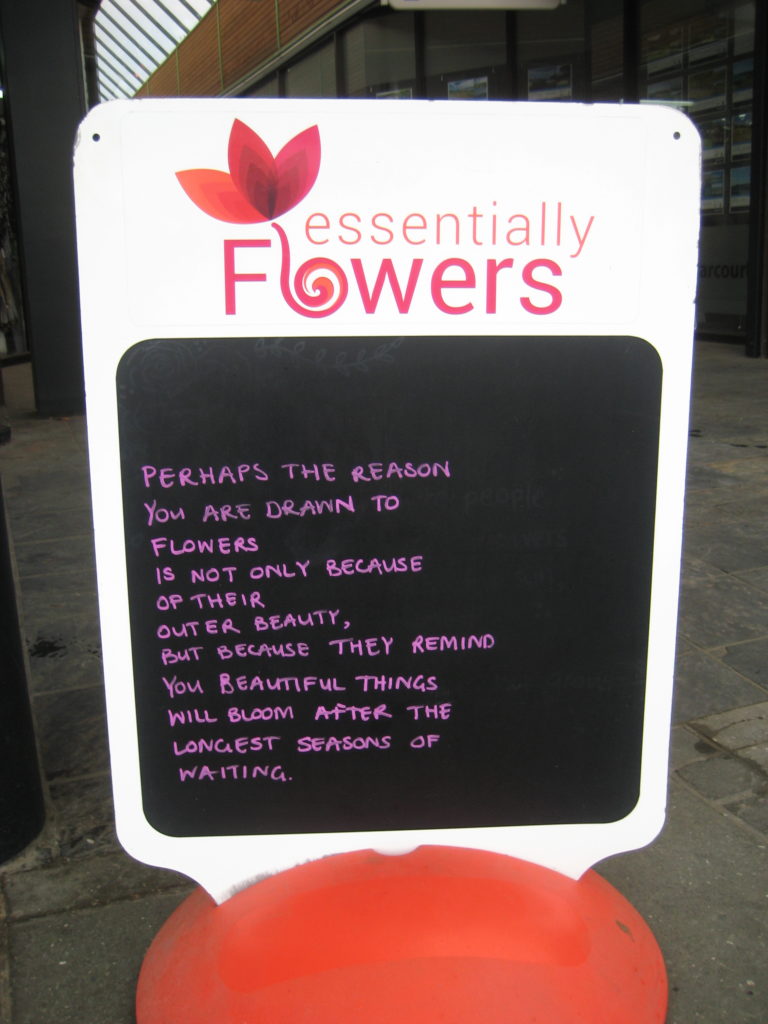 essentially
Flowers
PERHAPS THE REASON
YOU ARE DRAWN TO
FLOWERS
IS NOT ONLY BECAUSE
OF THEIR
OUTER BEAUTY,
BUT BECAUSE THEY REMIND
YOU BEAUTIFUL THINGS
WILL BLOOM AFTER THE
LONGEST SEASONS OF
WAITING.
people
arcour